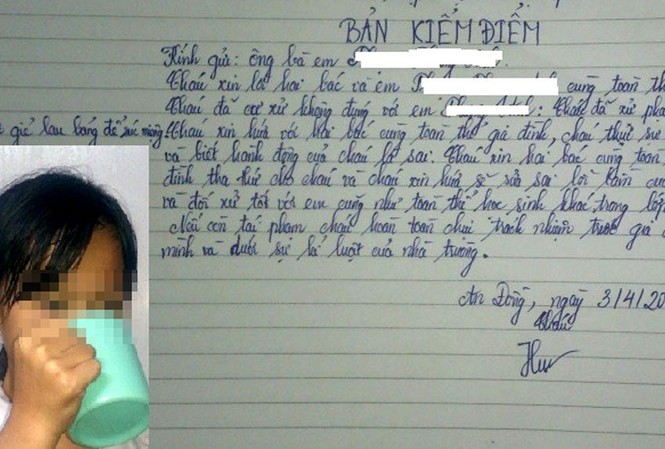 BẢN KIỂM ĐIỂM
Kính gửi: ông bà em
Cháu xin lỗi hai bác và em cùng toàn th
Cháu đã cư xử không đúng với em : Cháu đã xử phạ
giẻ lau bảng để súc miệng Cháu xin hứa với hai bác cùng toàn thể gia đình, cháu thực sự
và biết hành động của cháu là sai. Cháu xin hai bác cùng toàn
đình tha thứ cho cháu và cháu xin hứa sẽ sửa sai lỗi lầm củ
và đối xử tốt với em cũng như toàn thể học sinh khác trong lớp
Nếu còn tái phạm cháu hoàn toàn chịu trách nhiệm trước gia
mình và dưới sự kỉ luật của nhà trường.
An Đồng, ngày 3/4/20
Cháu